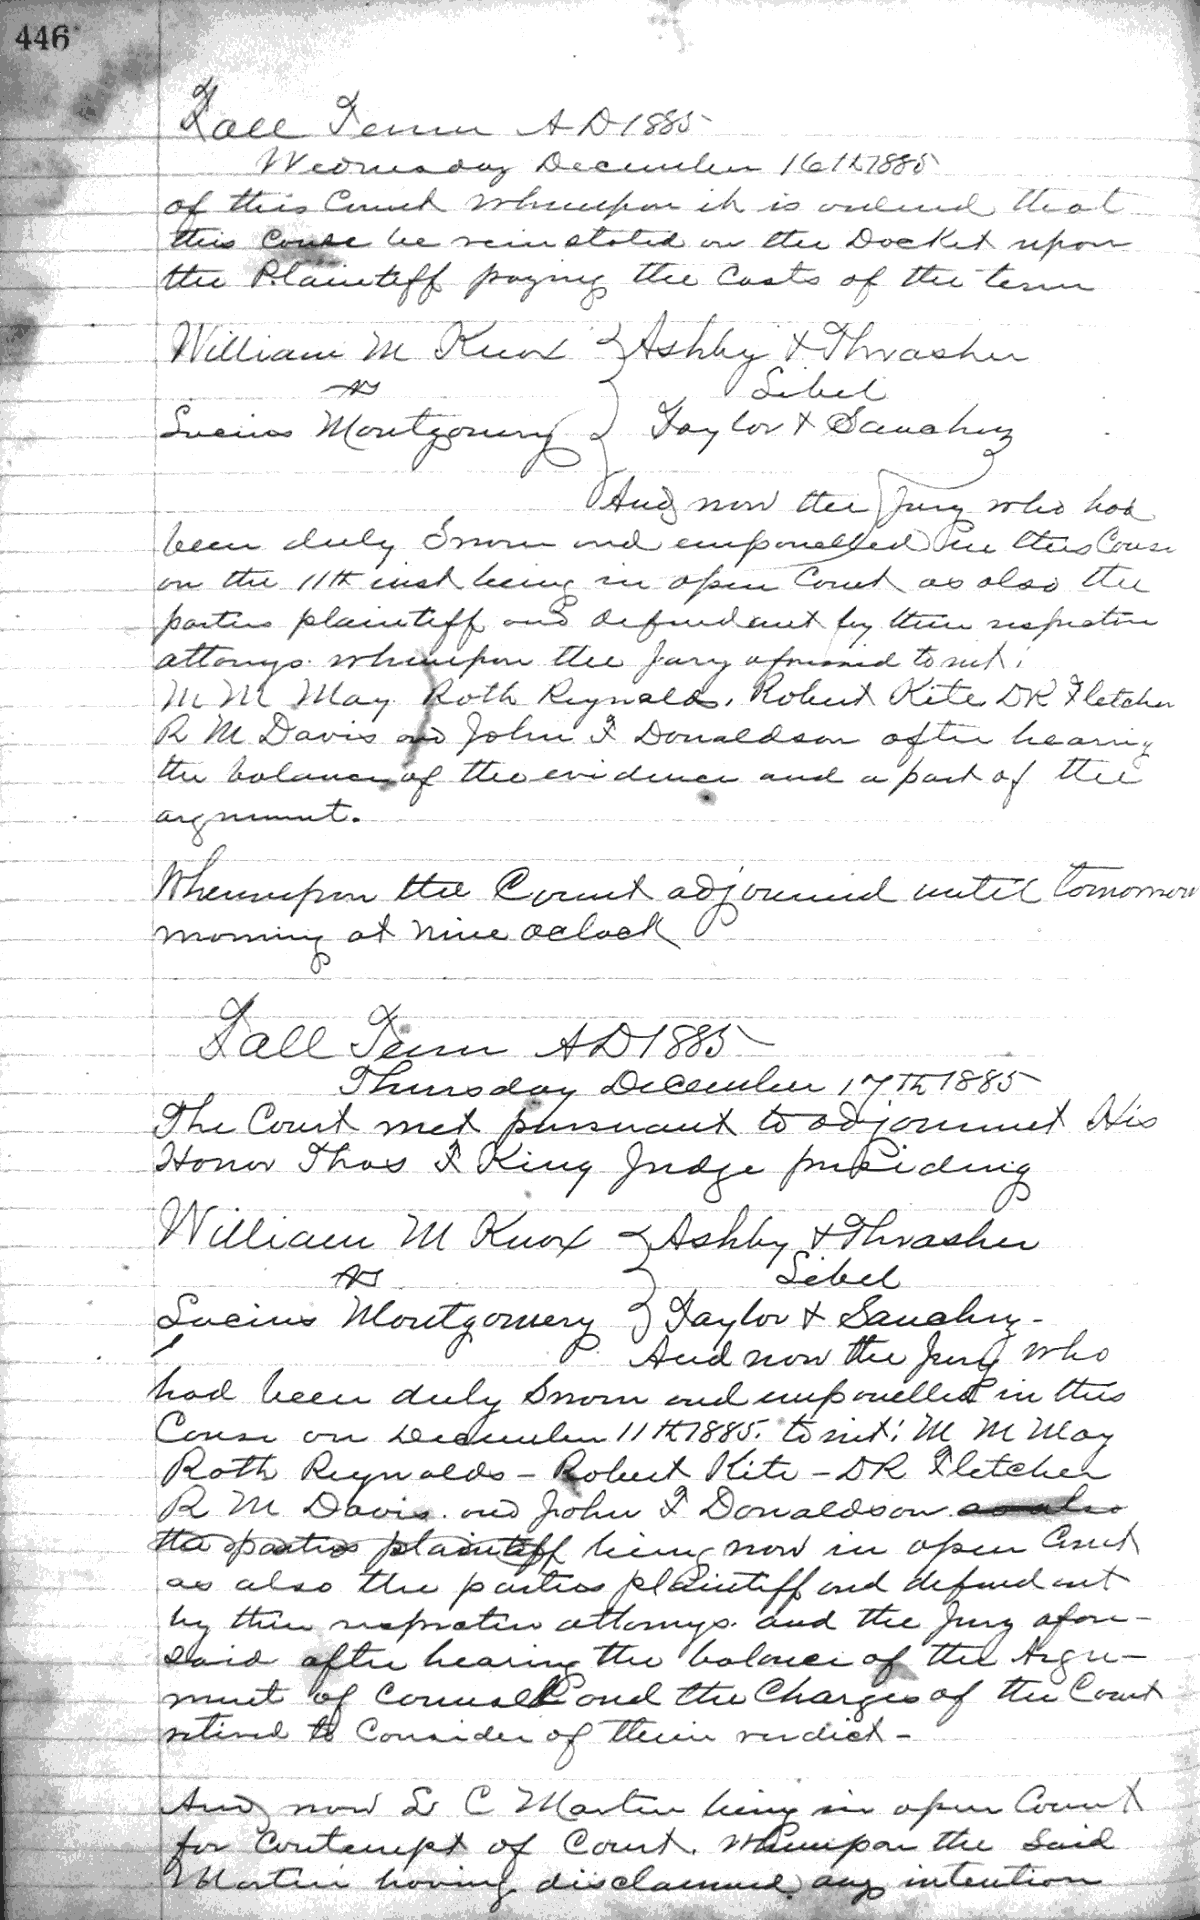 446
Fall Term A D 1885
Wednesday December 16th 1885
of this Court whereupon it is ordered that
this Cause be reinstated on the Docket upon
the Plaintiff paying the Costs of the term
William M Knox } Ashby & Thrasher
vs } Libel
Lucius Montgomery } Taylor & Sanchez
And now the Jury who had
been duly Sworn and empanelled in this Cause
on the 11th inst being in open Court as also the
parties plaintiff and defendant by their respective
attorneys whereupon the Jury aforesaid to wit:
M M May Roth Reynolds, Robert Kite DR Fletcher
R M Davis and John F Donaldson after hearing
the balance of the evidence and a part of the
argument.
Whereupon the Court adjourned until tomorrow
morning at nine oclock
Fall Term A D 1885
Thursday December 17th 1885
The Court met pursuant to adjournment His
Honor Thos F King Judge presiding
William M Knox } Ashby & Thrasher
vs } Libel
Lucius Montgomery } Taylor & Sanchez -
And now the Jury who
had been duly Sworn and empanelled in this
Cause on December 11th 1885. to wit: M M May
Roth Reynolds - Robert Kite - DR Fletcher
R M Davis and John F Donaldson as also
the parties plaintiff being now in open Court
as also the parties plaintiff and defendant
by their respective attorneys. and the Jury afore-
said after hearing the balance of the Argu-
ment of Counsel and the Charges of the Court
retired to Consider of their verdict -
And now L C Martin being in open Court
for Contempt of Court. Whereupon the Said
Martin having disclaimed any intention